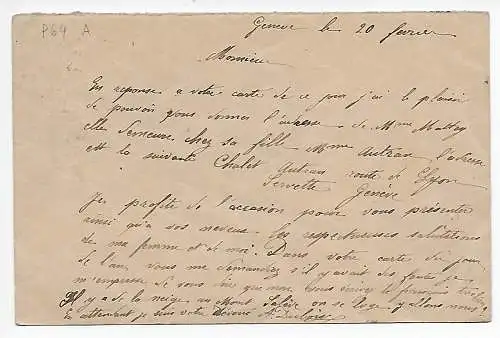 P64 A
Genève le 20 fevrier
Monsieur
En reponse a votre carte de ce jour j'ai le plaisir
de pouvoir vous donner l'adresse de Mme Mathey
elle demeure chez sa fille Mme Autran l'adresse
est la suivante Chalet Autran route de Lyon
Servette Genève
Je profite de l'occasion pour vous présenter
ainsi qu'a vos neveux les respectueuses salutations
de ma femme et de moi. Dans votre carte du jour
de l'an vous me demandez s'il y avait des fautes je
m'empresse de vous dire que vous
Il y a de la neige au Mont Salève on se loge y allons nous
En attendant je suis votre dévoué A.